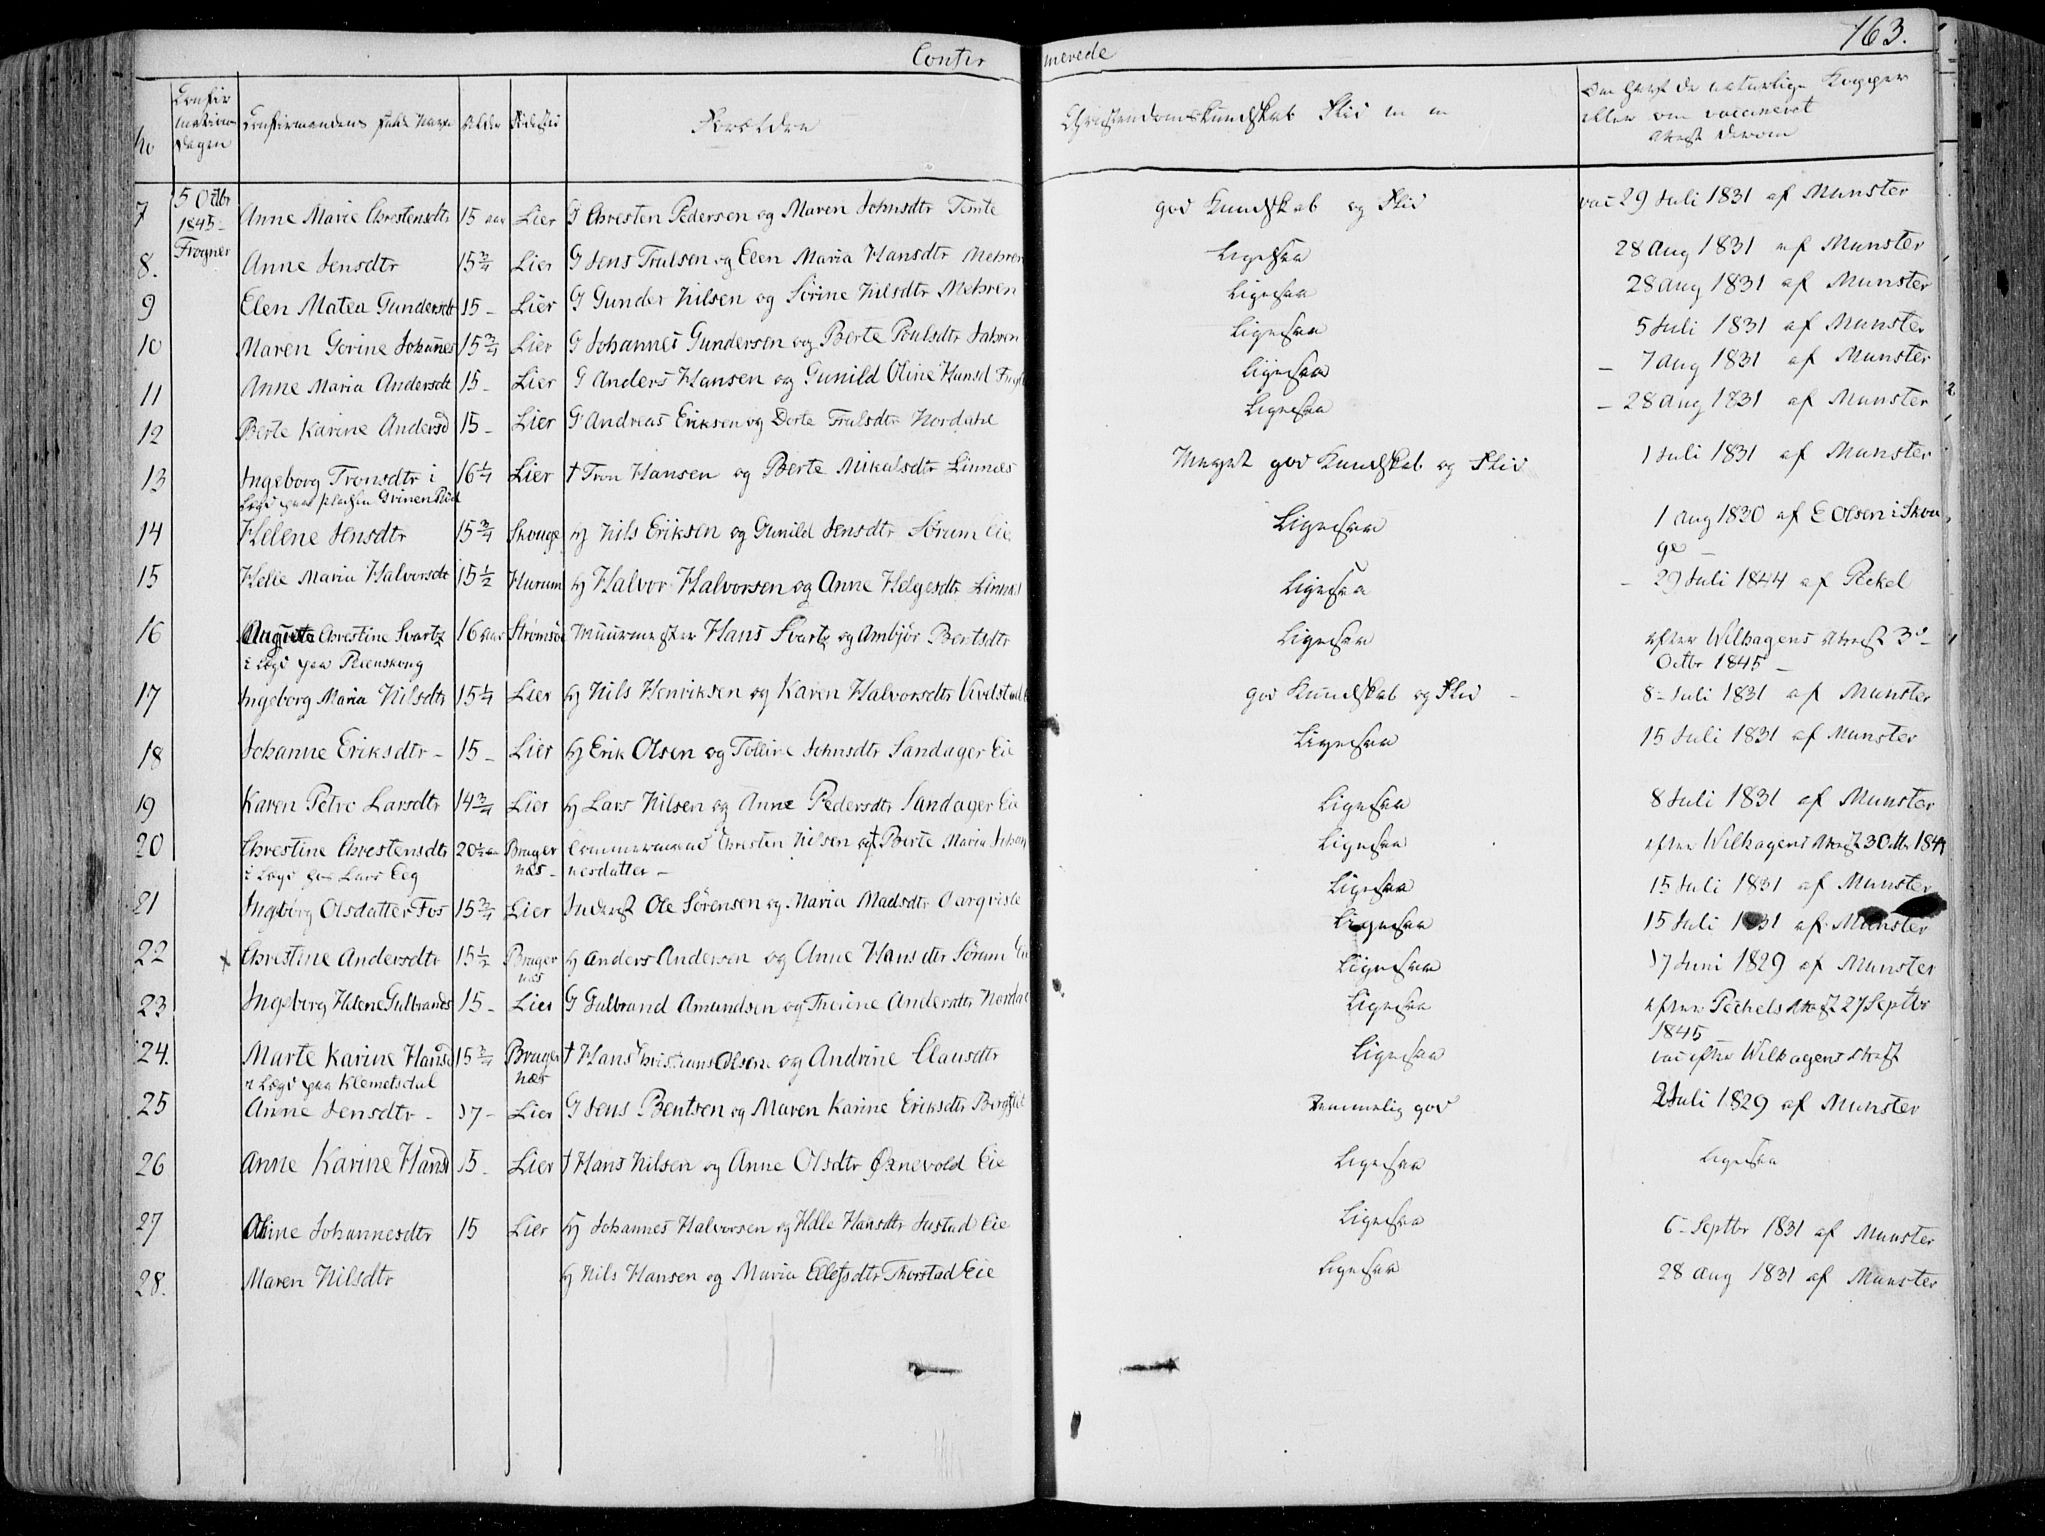 Confirmerede 163.
No Confirmations Dagen Confirmandens fulde Navn Alder Fødested Forældre Christendomskundskab Flid m m Om havt de naturlige Kopper eller om vaccineret Attest derom
7 5 Octbr 1845 - Frogner Anne Marie Chrestensdtr 15 aar Lier G Chresten Pedersen og Maren Johnsdtr Temte god Kundskab og Flid vac 29 Juli 1831 af Munster
8. Anne Jensdtr 15 3/4 Lier G Jens Trulsen og Elen Maria Hansdtr Mehren Ligesaa 28 Aug 1831 af Munster
9 Elen Matea Gundersdtr 15 - Lier G Gunder Nilsen og Sörine Nilsdtr Mehren Ligesaa 28 Aug 1831 af Munster
10 Maren Gorine Johannes 15 3/4 Lier G Johannes Gundersen og Berte Poulsdtr Jahren Ligesaa 5 Juli 1831 af Munster
11 Anne Maria Andersdt 15 - Lier G Anders Hansen og Gunild Oline Hansd Ligesaa - 7 Aug 1831 af Munster
12 Berte Karine Andersd 15 - Lier G Andreas Eriksen og Dorte Trulsdtr Nordahl Ligesaa - 28 Aug 1831 af Munster
13 Ingeborg Tronsdtr i 16 1/4 Lier † Tron Hansen og Berte Mikalsdtr Linnes Meget god Kundskab og Flid 1 Juli 1831 af Munster
Lægd paa pladsen Grinen
14 Helene Jensdtr 15 3/4 Skouge Hj Nils Eriksen og Gunild Jensdtr Sørum Eie Ligesaa 1 Aug 1830 af E Olsen i Skou
ge -
15 Helle Maria Halvorsdt 15 1/2 Hurum Hj Halvor Halvorsen og Anne Helgesdtr Linnes Ligesaa - 29 Juli 1844 af Peckel
16 Auguste Chrestine Svartz 16 aar Strömsöe Muurmester Hans Svartz og Ambjör Bertsdtr Ligesaa efter Wilhagens Attest 3d -
i Lægd paa Reenskoug Octbr 1845 -
17 Ingeborg Maria Nilsdtr 15 1/4 Lier Hj Nils Henriksen og Karen Halvorsdtr god Kundskab og Flid - 8 - Juli 1831 af Munster
18 Johanne Eriksdtr - 15 - Lier Hj Erik Olsen og Johnsdtr Sandager Eie Ligesaa 15 Juli 1831 af Munster
19 Karen Petre Larsdtr 14 3/4 Lier Hj Lars Nilsen og Anne Pedersdtr Sandager Eie Ligesaa 8 Juli 1831 af Munster
20 Chrestine Chrestensdtr 20 1/2 aar Bragernæs - Chresten Nilsen og † Berte Maria Johan Ligesaa efter Wilhagens Attest 3 Octbr 184
i Lægd hos Lars Eeg nesdatter -
21 Ingebörg Olsdatter Fos 15 3/4 Lier Inderst Ole Sörensen og Maria Madsdtr Aarqvisle Ligesaa 15 Juli 1831 af Munster
Ligesaa 15 Juli 1831 af Munster
22 x Chrestine Andersdtr 15 1/2 Bragernæs Hj Anders Andersen og Anne Hansdtr Sörum Ligesaa 17 Juni 1829 af Munster
23 Ingeborg Helene Gulbrands 15 - Lier G Gulbrand Amundsen og Therine Andersdtr Nordal Ligesaa efter Pechels Attest 27 Septbr
1845
24. Marte Karine Hansd 15 3/4 Bragernæs † Hans Christians Olsen og Andrine Clausdtr Ligesaa vac efter Wilhagens Attest
i Lægd paa Klemetsdal
25 Anne Jensdtr - 17 - Lier G Jens Bentsen og Maren Karine Eriksdtr Temmelig god 2 Juli 1829 af Munster
26 Anne Karine Hansd 15 - Lier † Hans Nilsen og Anne Olsdtr Ørnevold Eie Ligesaa Ligesaa
27 Oline Johannesdtr 15 Lier Hj Johannes Halvorsen og Helle Hansdtr Justad Eie Ligesaa 6 - Septbr 1831 af Munster
28. Maren Nilsdtr Hj Nils Hansen og Maria Ellefsdtr Thorstad Eie Ligesaa 28 Aug 1831 af Munster